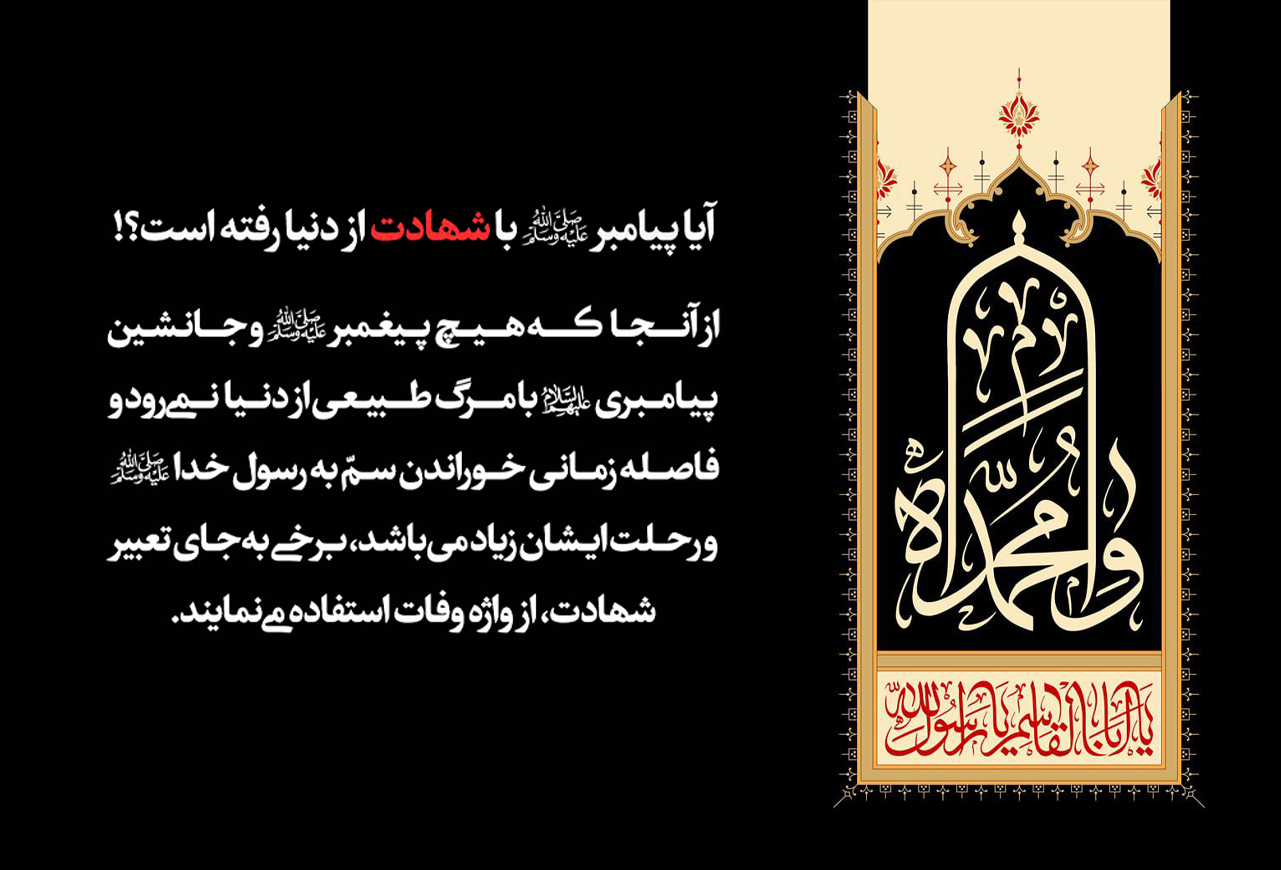 آیا پیامبر ﷺ با شهادت از دنیا رفته است؟!
از آنجا که هیچ پیغمبر ﷺ و جانشین
پیامبری علیهم‌السلام با مرگ طبیعی از دنیا نمی‌رود و
فاصله زمانی خوراندن سمّ به رسول خدا ﷺ
و رحلت ایشان زیاد می‌باشد، برخی به جای تعبیر
شهادت، از واژه وفات استفاده می‌نمایند.
وامحمّداه
یا اباالقاسم یا رسول الله